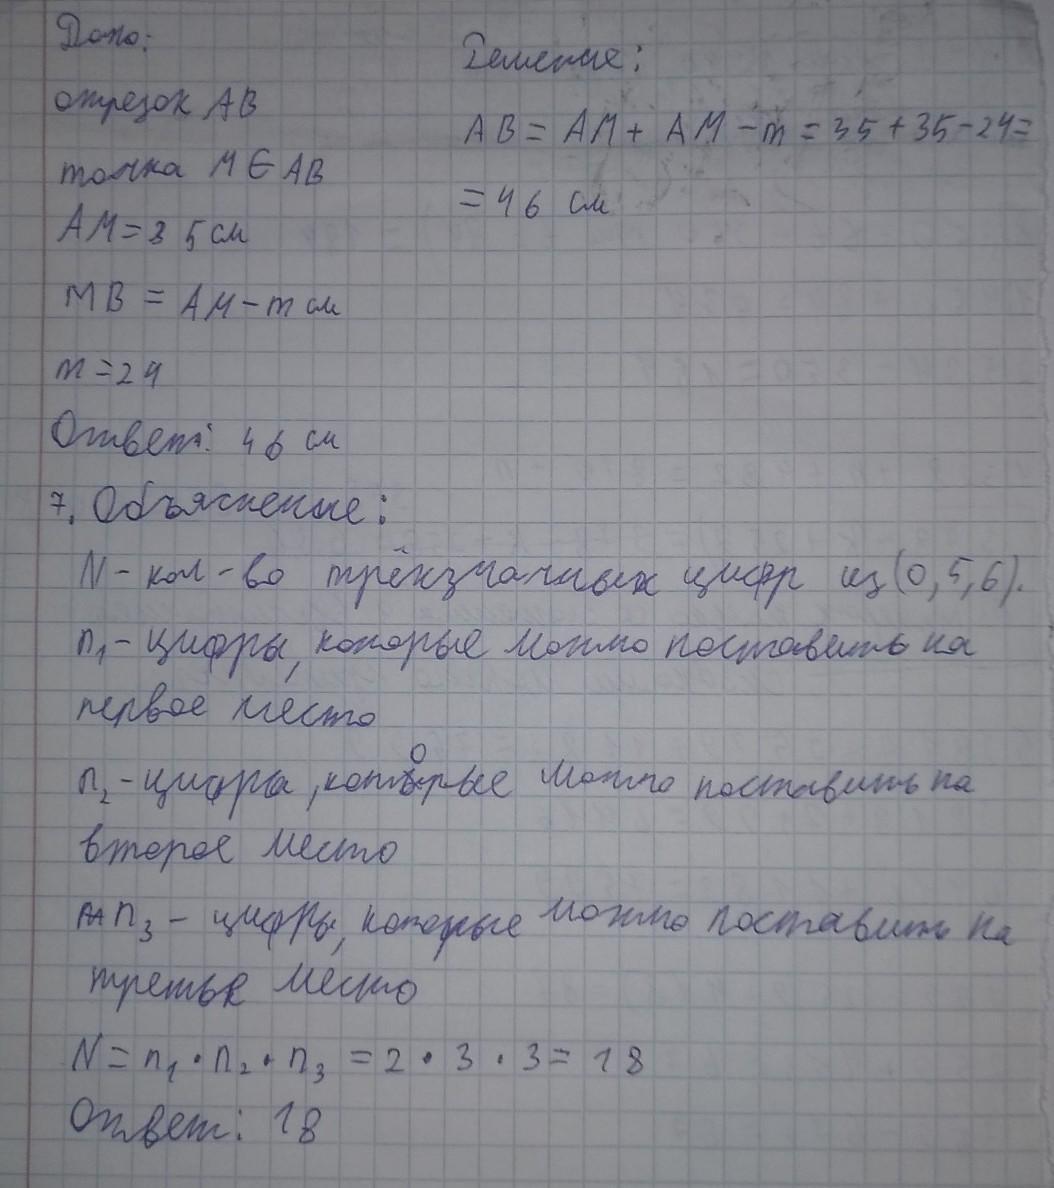 Дано:
отрезок AB
точка M ∈ AB
AM = 35 см
MB = AM - m см
m = 24
Ответ: 46 см
Решение:
AB = AM + AM - m = 35 + 35 - 24 =
= 46 см
7. Объяснение:
N - кол-во трёхзначных цифр из (0, 5, 6).
n₁ - цифры, которые можно поставить на
первое место
n₂ - цифры, которые можно поставить на
второе место
n₃ - цифры, которые можно поставить на
третье место
N = n₁ · n₂ · n₃ = 2 · 3 · 3 = 18
Ответ: 18